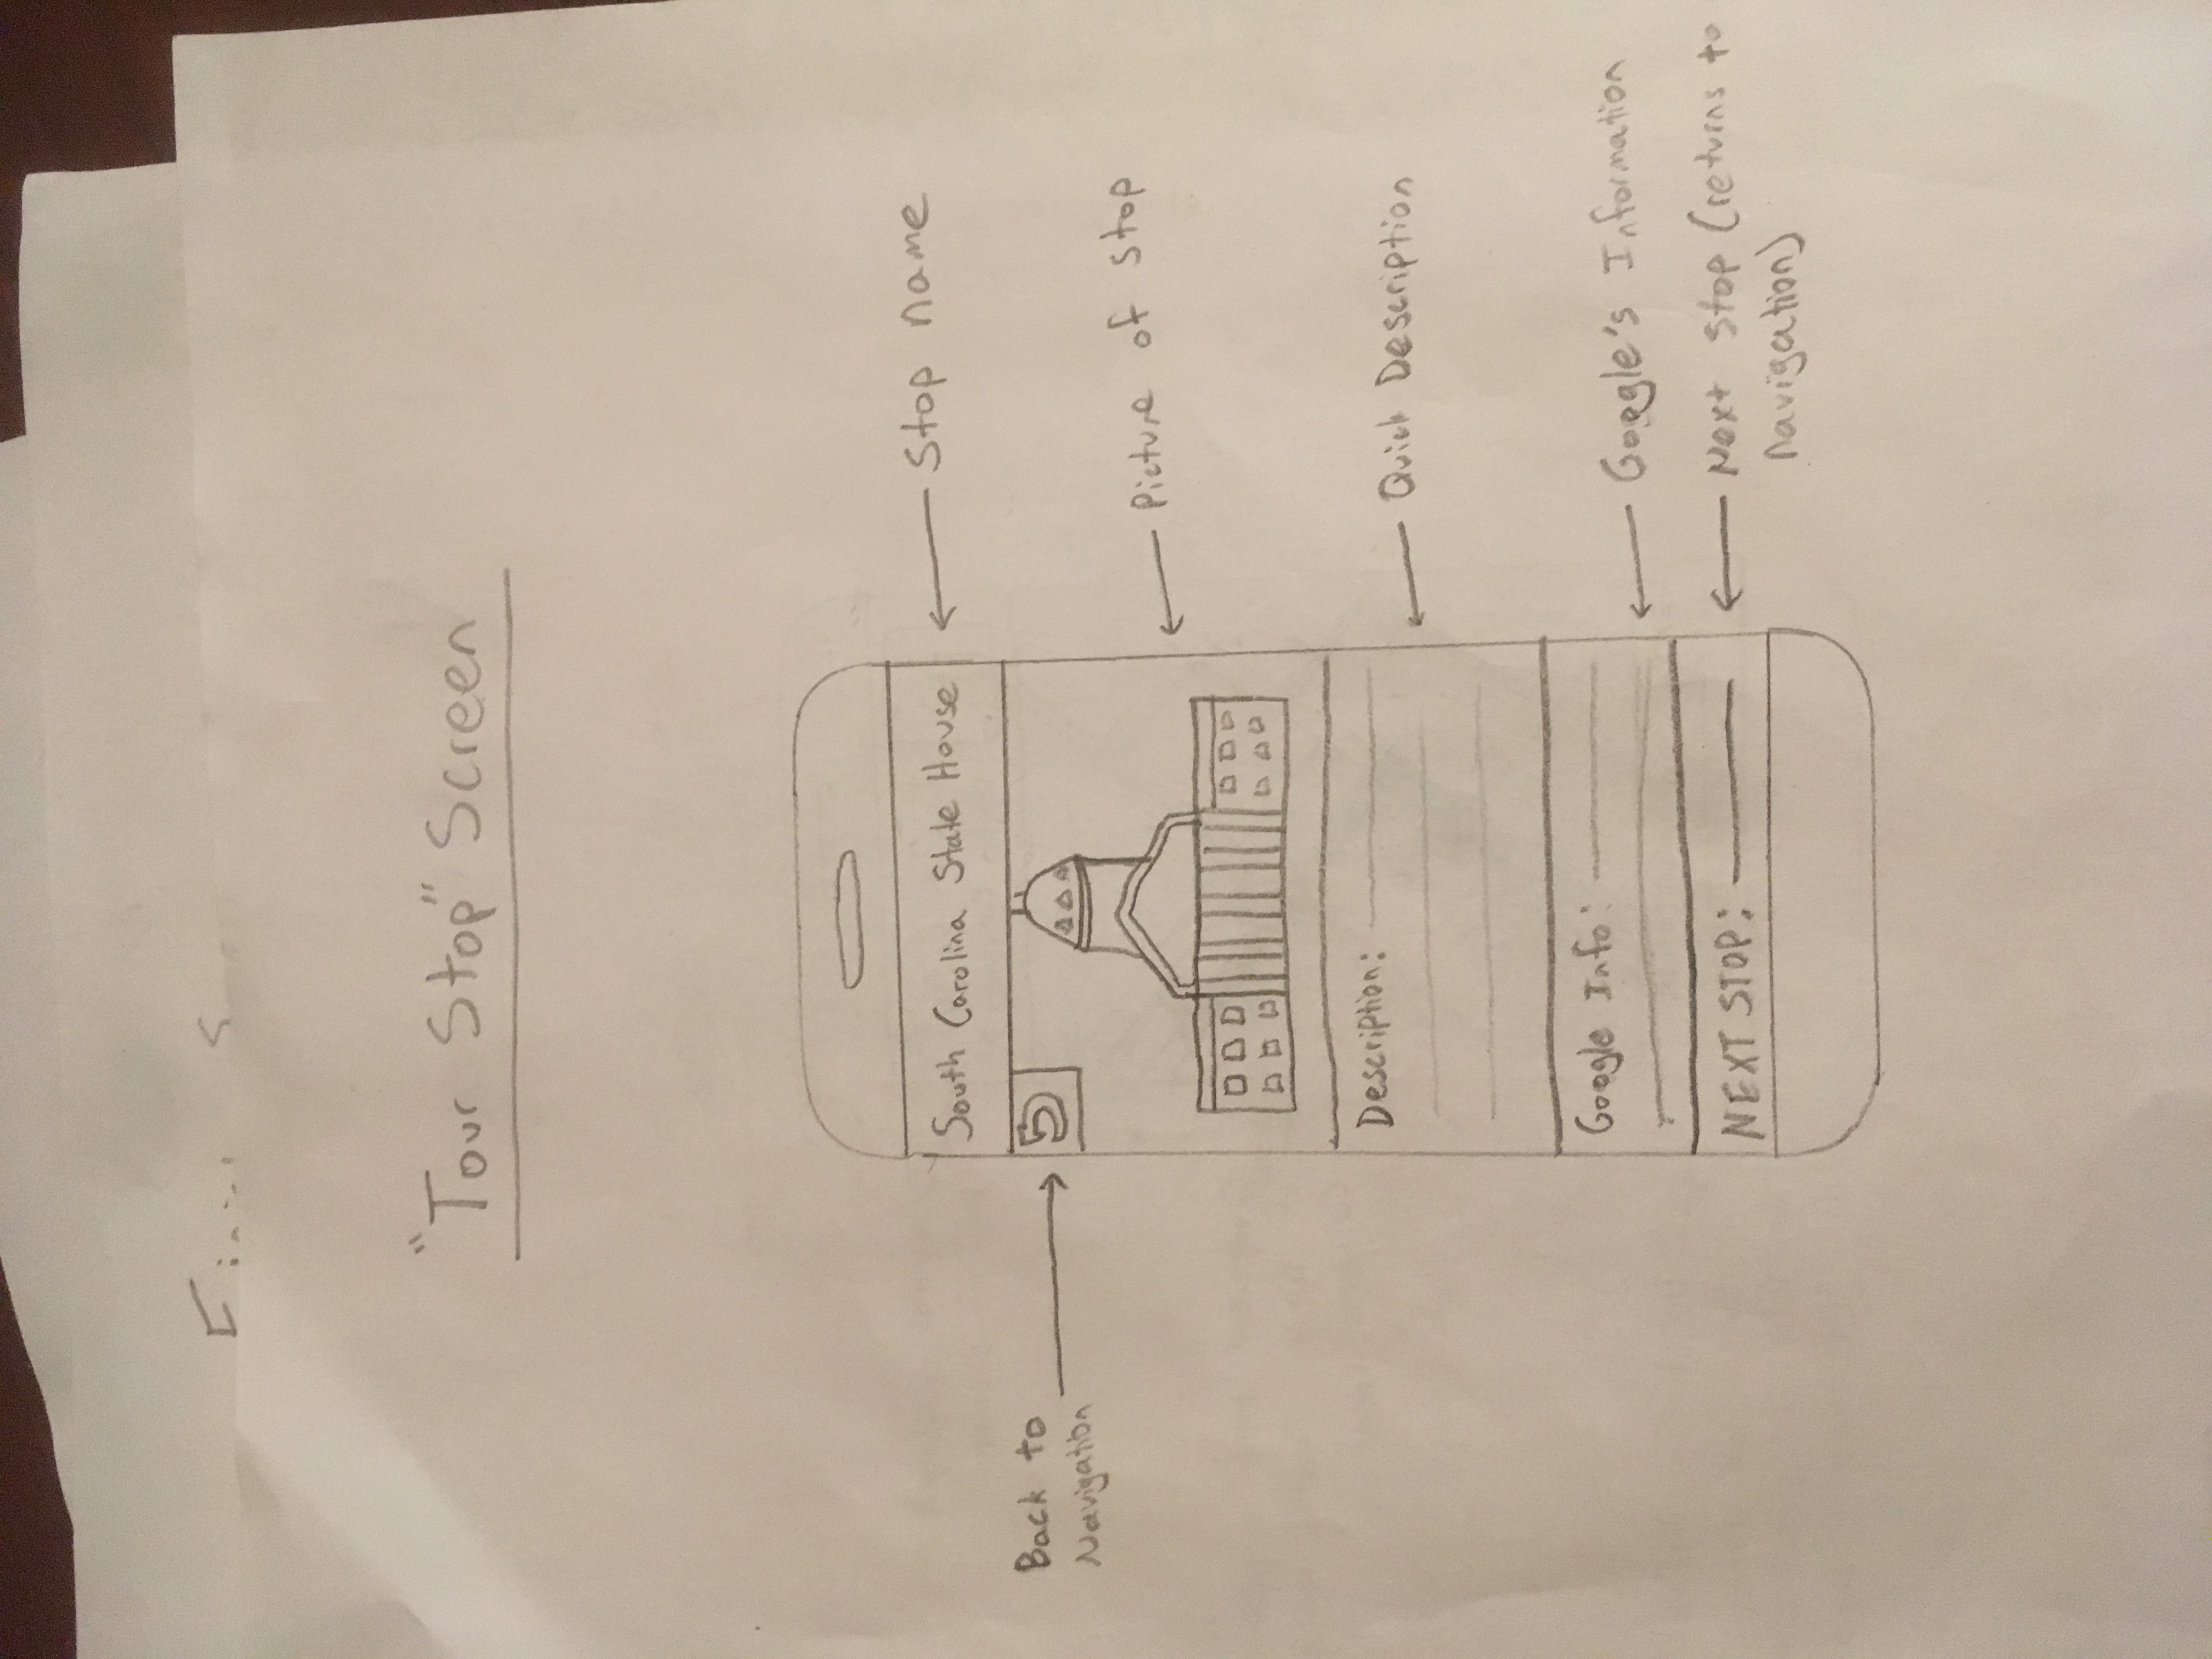 "Tour Stop" Screen
South Carolina State House
Stop name
Back to
Navigation
Picture of stop
Description:
Quick Description
Google Info:
Google's Information
NEXT STOP:
Next stop (returns to
navigation)